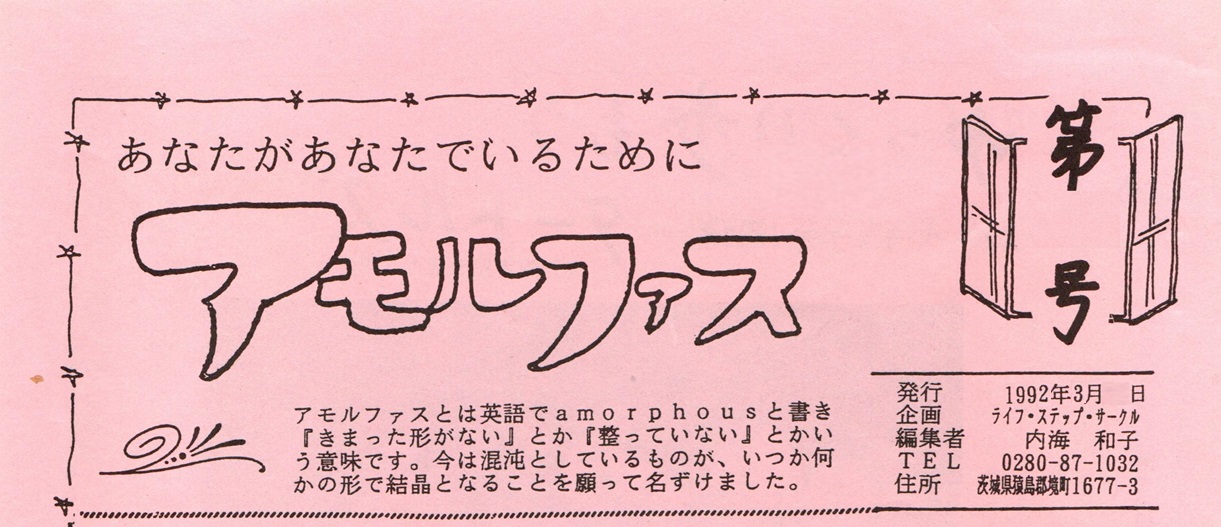 あなたがあなたでいるために
アモルファス
第　号
アモルファスとは英語でａｍｏｒｐｈｏｕｓと書き
『きまった形がない』とか『整っていない』とかい
う意味です。今は混沌としているものが、いつか何
かの形で結晶となることを願って名ずけました。
発行　1992年3月　日
企画　ライフ・ステップ・サークル
編集者　内海　和子
ＴＥＬ　0280-87-1032
住所　茨城県猿島郡境町1677-3